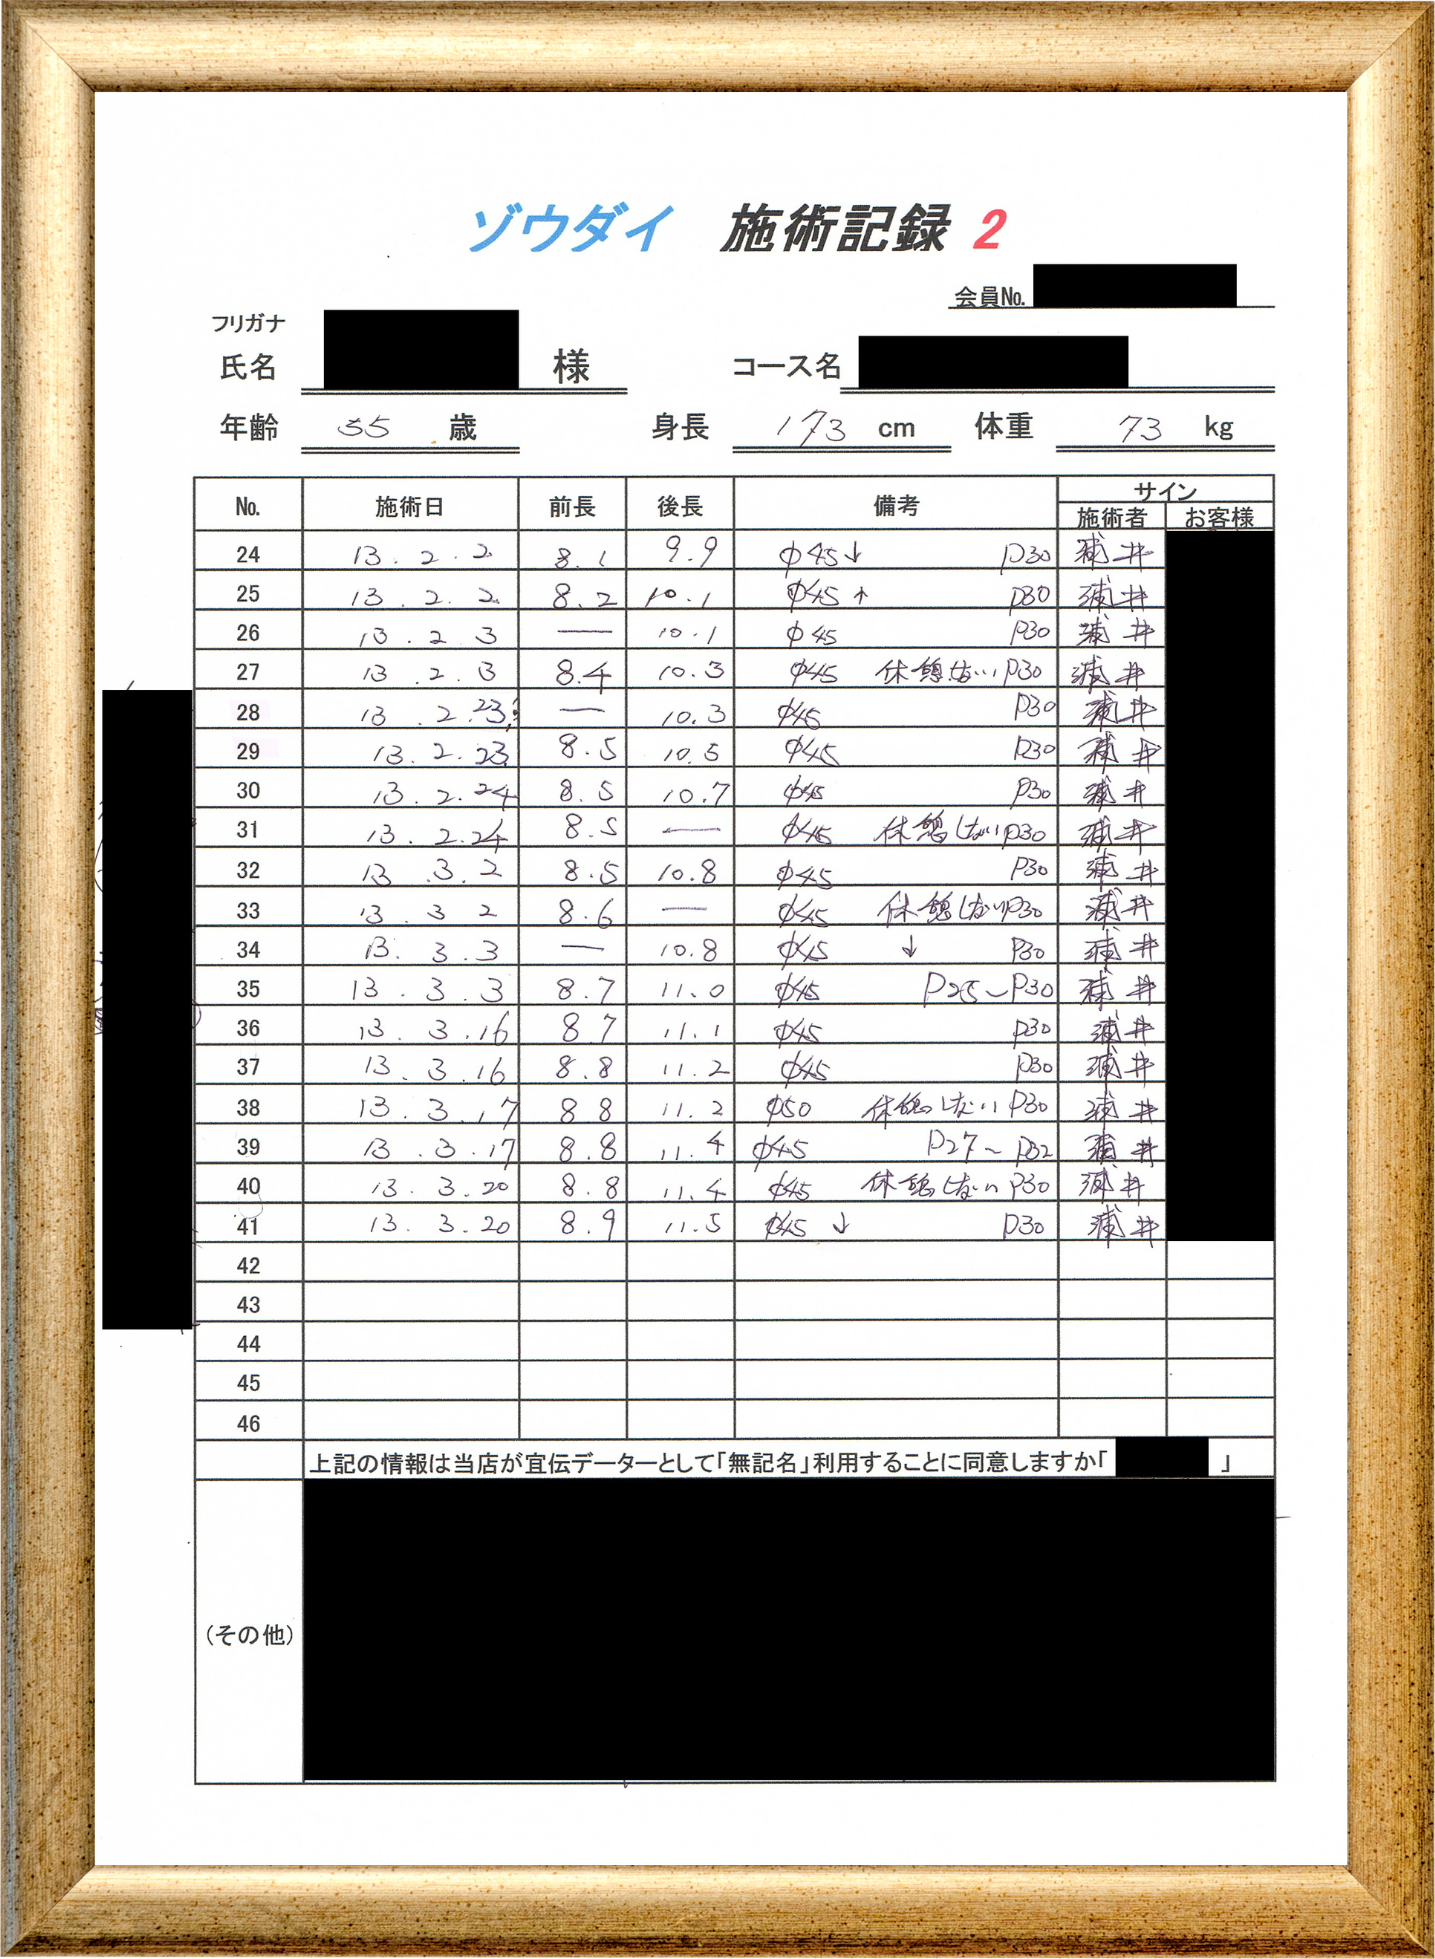 ゾウダイ 施術記録 2
会員No.
フリガナ
氏名 様 コース名
年齢 35 歳 身長 173 cm 体重 73 kg
No. 施術日 前長 後長 備考 サイン
施術者 お客様
24 13.2.2 8.1 9.9 φ45↓ P30 浦井
25 13.2.2 8.2 10.1 φ45↑ P30 浦井
26 13.2.3 — 10.1 φ45 P30 浦井
27 13.2.3 8.4 10.3 φ45 休憩ない P30 浦井
28 13.2.23 — 10.3 φ45 P30 浦井
29 13.2.23 8.5 10.5 φ45 P30 浦井
30 13.2.24 8.5 10.7 φ45 P30 浦井
31 13.2.24 8.5 — φ45 休憩しない P30 浦井
32 13.3.2 8.5 10.8 φ45 P30 浦井
33 13.3.2 8.6 — φ45 休憩しない P30 浦井
34 13.3.3 — 10.8 φ45 ↓ P30 浦井
35 13.3.3 8.7 11.0 φ45 P25〜P30 浦井
36 13.3.16 8.7 11.1 φ45 P30 浦井
37 13.3.16 8.8 11.2 φ45 P30 浦井
38 13.3.17 8.8 11.2 φ50 休憩しない P30 浦井
39 13.3.17 8.8 11.4 φ45 P27〜P32 浦井
40 13.3.20 8.8 11.4 φ45 休憩しない P30 浦井
41 13.3.20 8.9 11.5 φ45 ↓ P30 浦井
42
43
44
45
46
上記の情報は当店が宣伝データーとして「無記名」利用することに同意しますか「 」
(その他)